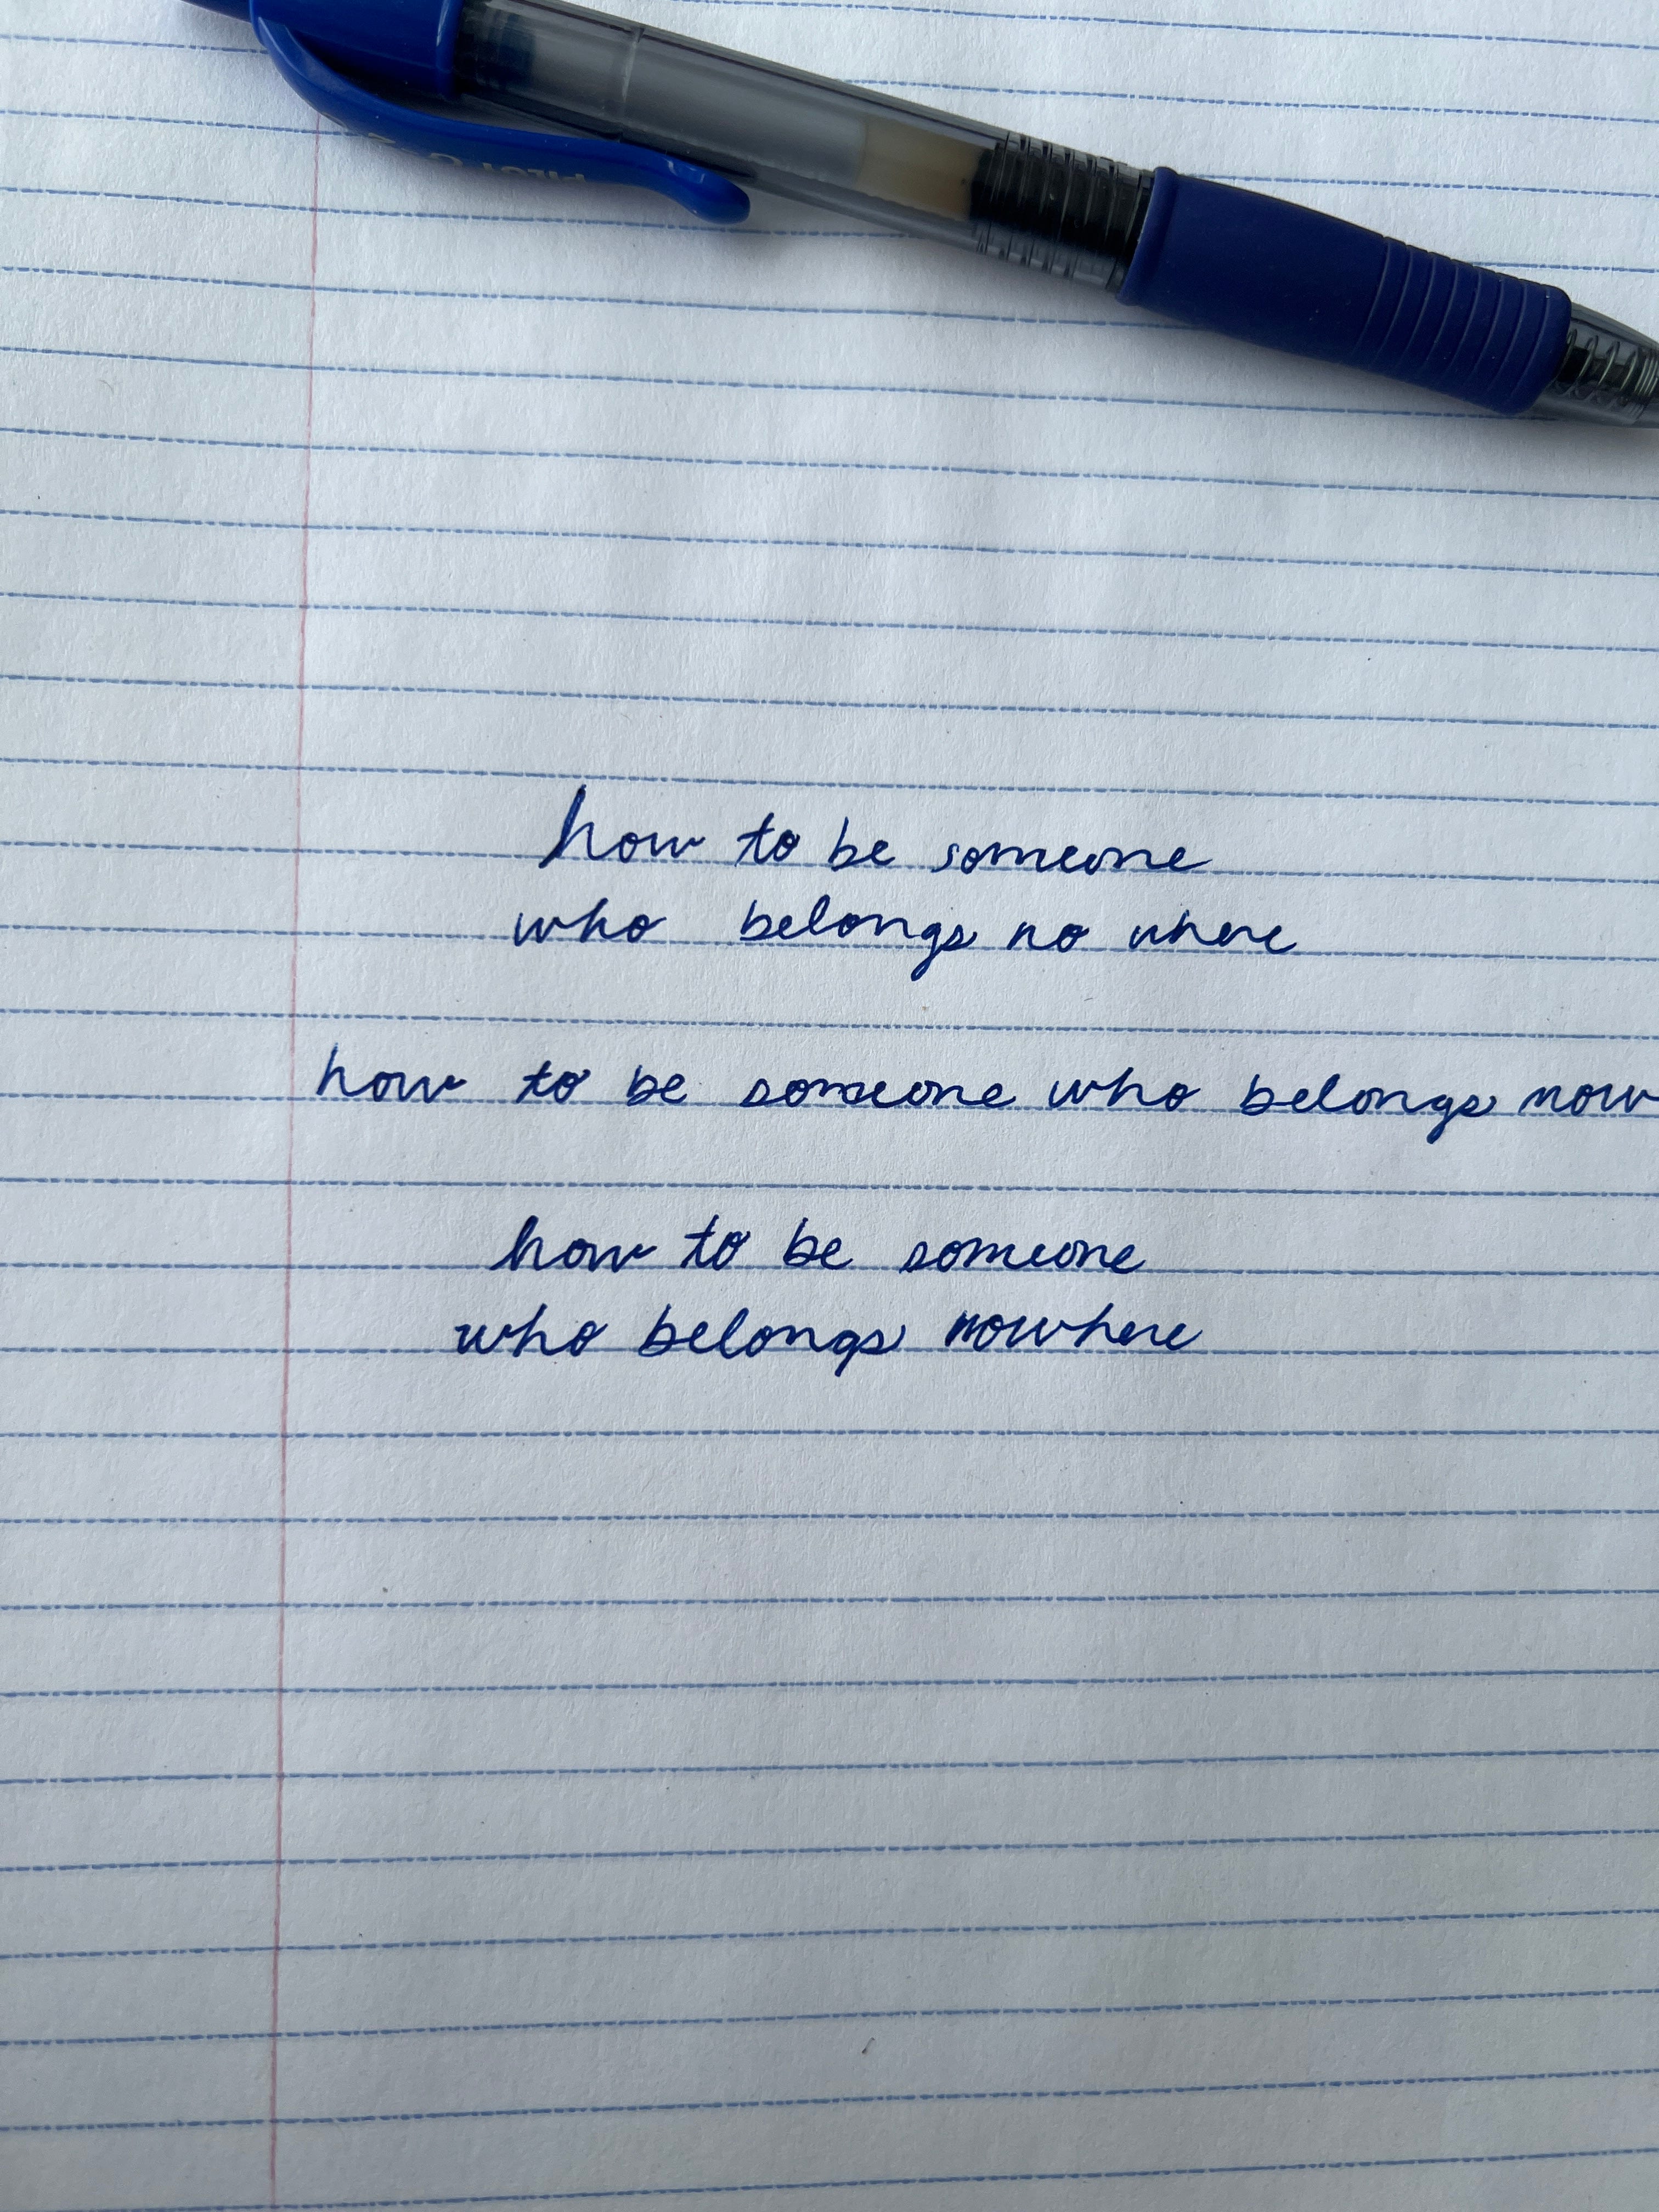 PILOT G-2
how to be someone
who belongs no where
how to be someone who belongs now
how to be someone
who belongs nowhere